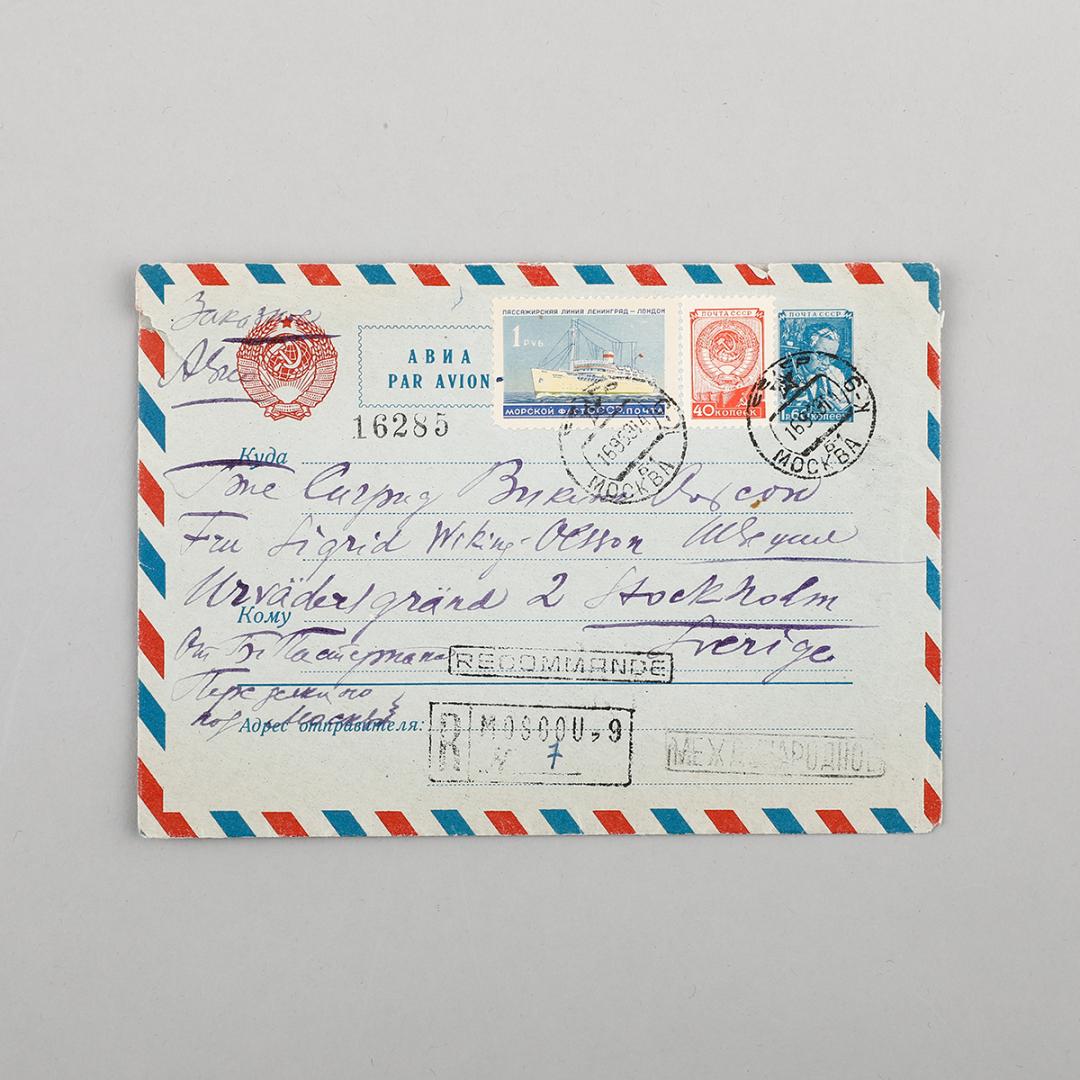 Заказное
Авиа
АВИА
PAR AVION
16285
ПАССАЖИРСКАЯ ЛИНИЯ ЛЕНИНГРАД — ЛОНДОН
1 РУБ
МОРСКОЙ ФЛОТ СССР. ПОЧТА
ПОЧТА СССР
40 КОПЕЕК
ПОЧТА СССР
КОПЕЕК
МОСКВА
МОСКВА
Куда
Г-же Сигрид Викинг Олссон
Fru Sigrid Wiking-Olsson Швеция
Urvädersgränd 2 Stockholm
Кому
Sverige
От Б. Пастернака
RECOMMANDÉ
Переделкино
под Москвой
Адрес отправителя:
R MOSCOU, 9
N 7
МЕЖДУНАРОДНОЕ